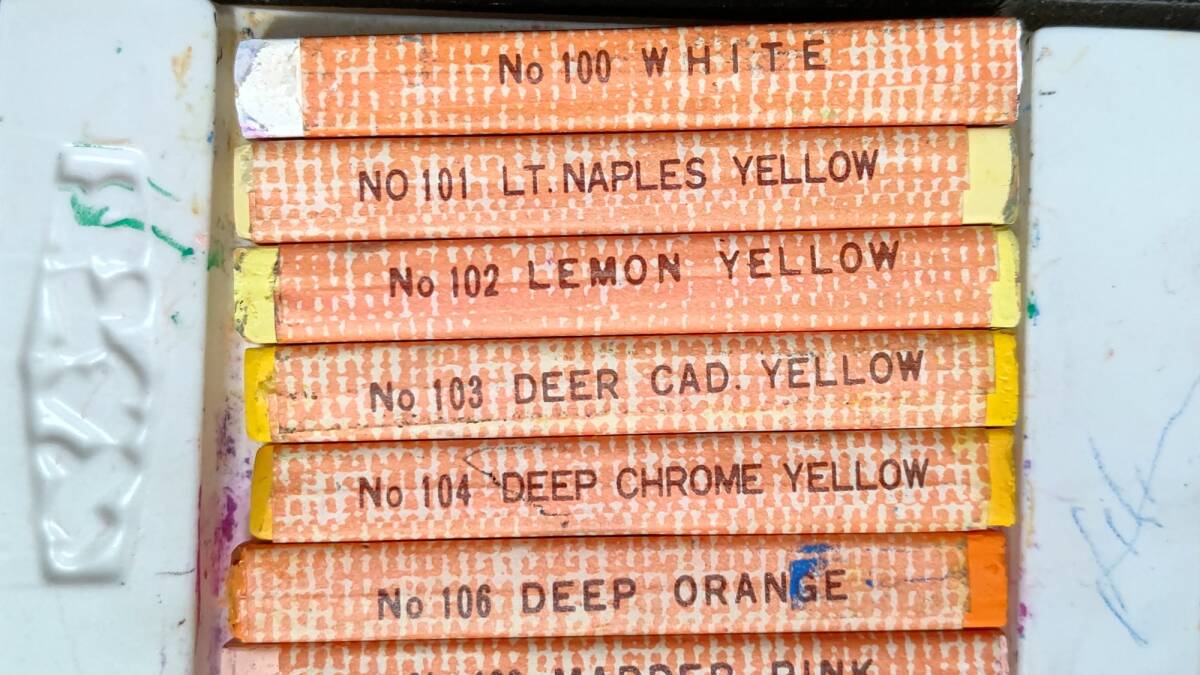 No 100 WHITE
NO 101 LT. NAPLES YELLOW
No 102 LEMON YELLOW
No 103 DEER CAD. YELLOW
No 104 DEEP CHROME YELLOW
No 106 DEEP ORANGE
MADDER PINK